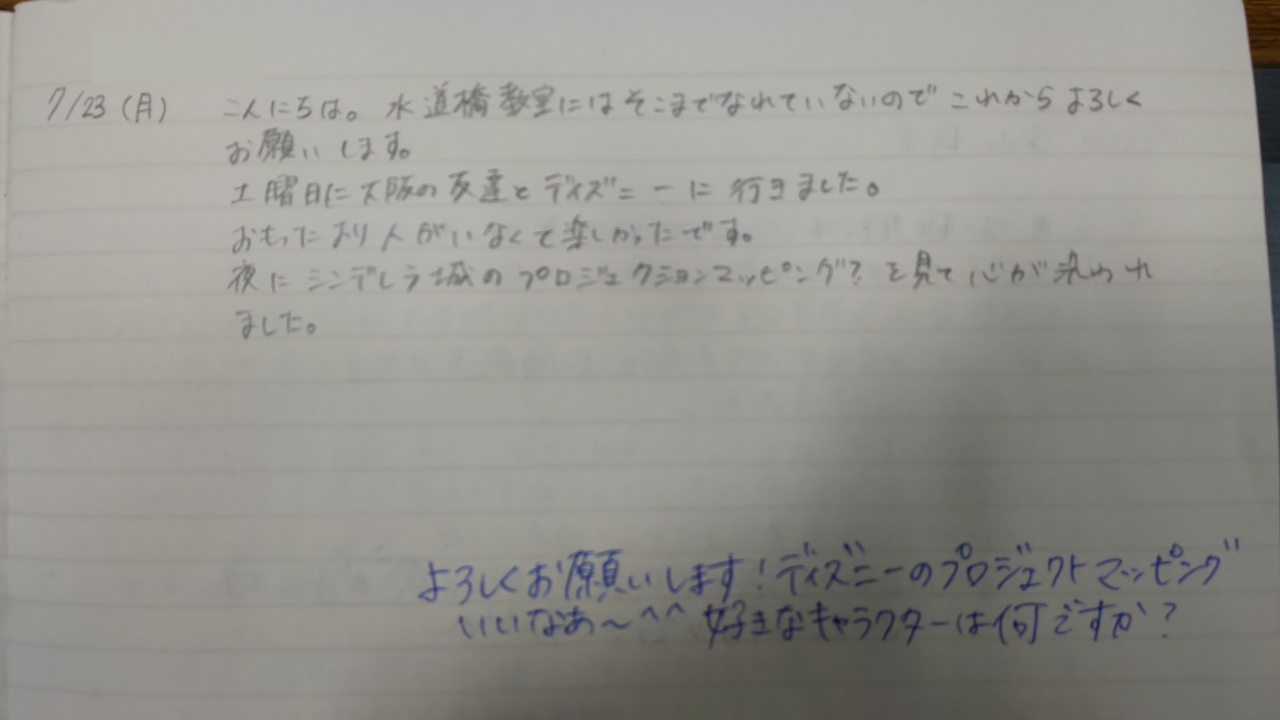 7/23(月) こんにちは。水道橋教室にはそこまでなれていないのでこれからよろしく
お願いします。
土曜日に大阪の友達とディズニーに行きました。
おもったより人がいなくて楽しかったです。
夜にシンデレラ城のプロジェクションマッピング?を見て心が洗われ
ました。
よろしくお願いします!ディズニーのプロジェクトマッピング
いいなあ~^^ 好きなキャラクターは何ですか?